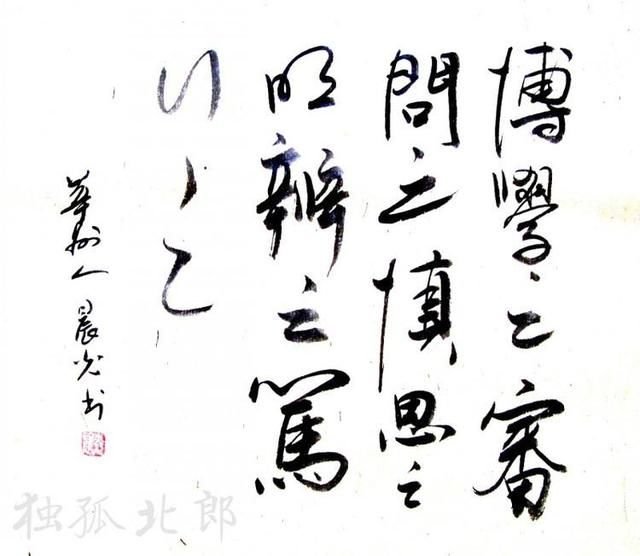 博學之審
問之慎思之
明辨之篤
行之
華州人晨光书
独孤北郎